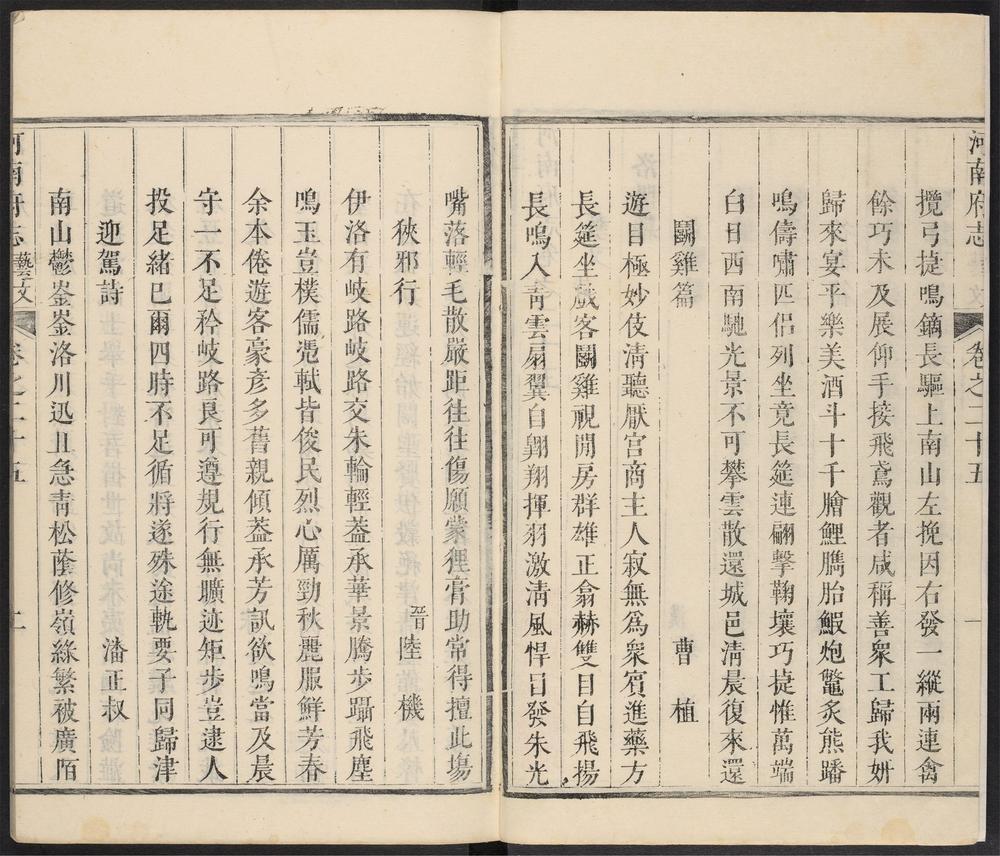 河南府志
卷之二十五
一
攬弓捷鳴鏑長驅上南山左挽因右發一縱兩連禽
餘巧未及展仰手接飛鳶觀者咸稱善衆工歸我妍
歸來宴平樂美酒斗十千膾鯉臇胎鰕炮鼈炙熊蹯
鳴儔嘯匹侶列坐竟長筵連翩擊鞠壤巧捷惟萬端
白日西南馳光景不可攀雲散還城邑淸晨復來還
鬭雞篇 曹植
遊目極妙伎淸聽厭宮商主人寂無爲衆賓進藥方
長筵坐戲客鬭雞覗閒房群雄正翕赫雙目自飛揚
長鳴入靑雲扇翼自翺翔揮羽激淸風悍目發朱光
嘴落輕毛散嚴距往往傷願蒙狸膏助常得擅此塲
狹邪行 晉陸機
伊洛有岐路岐路交朱輪輕葢承華景騰步躡飛塵
鳴玉豈樸儒憑軾皆俊民烈心厲勁秋麗服鮮芳春
余本倦遊客豪彥多舊親傾葢承芳訊欲鳴當及晨
守一不足矜岐路良可遵規行無曠迹矩步豈逮人
投足緒巳爾四時不足循將遂殊途軌要子同歸津
迎駕詩 潘正叔
南山鬱崟崟洛川迅且急靑松蔭修嶺綠繁被廣陌
河南府志
藝文
卷之二十五
二